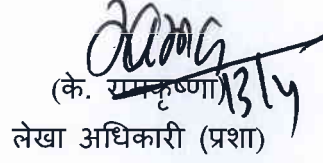 (के. रामकृष्णा) 13/4
लेखा अधिकारी (प्रशा)